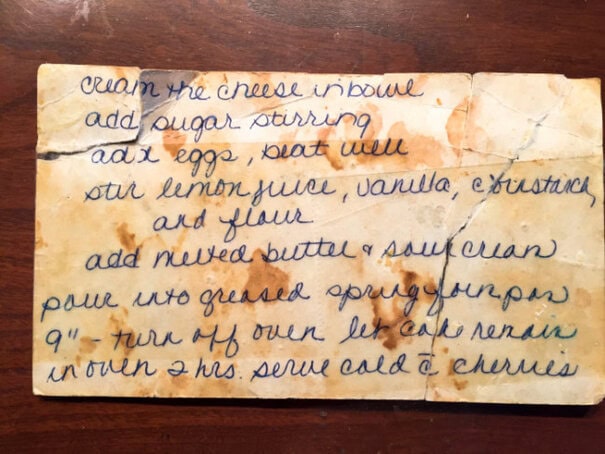 cream the cheese in bowl
add sugar stirring
add eggs, beat well
stir lemon juice, vanilla, c'ornstarch,
and flour
add melted butter & sour cream
pour into greased spring form pan
9" - turn off oven let cake remain
in oven 2 hrs. serve cold c̄ cherries